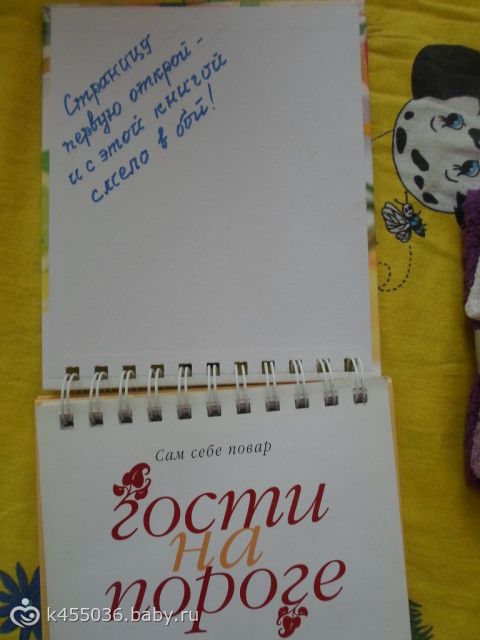 Страницу
первую открой -
и с этой книгой
смело в бой!
Сам себе повар
гости
на
пороге
k455036.baby.ru